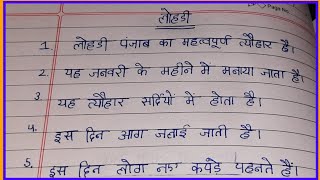 लोहडी
1. लोहडी पंजाब का महत्वपूर्ण त्यौहार है।
2. यह जनवरी के महीने में मनाया जाता है।
3. यह त्यौहार सर्दियों में होता है।
4. इस दिन आग जलाई जाती है।
5. इस दिन लोग नए कपड़े पहनते हैं।